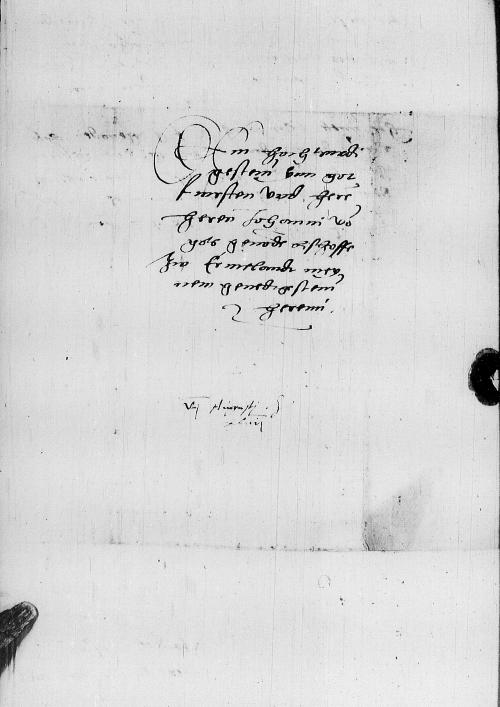 Dem hochwirdi
gesten vnn gor
fursten vnd here
heren Johanni vo
gots genode bischoffe
zw Ermelandt mey
nem genedigesten
heren.